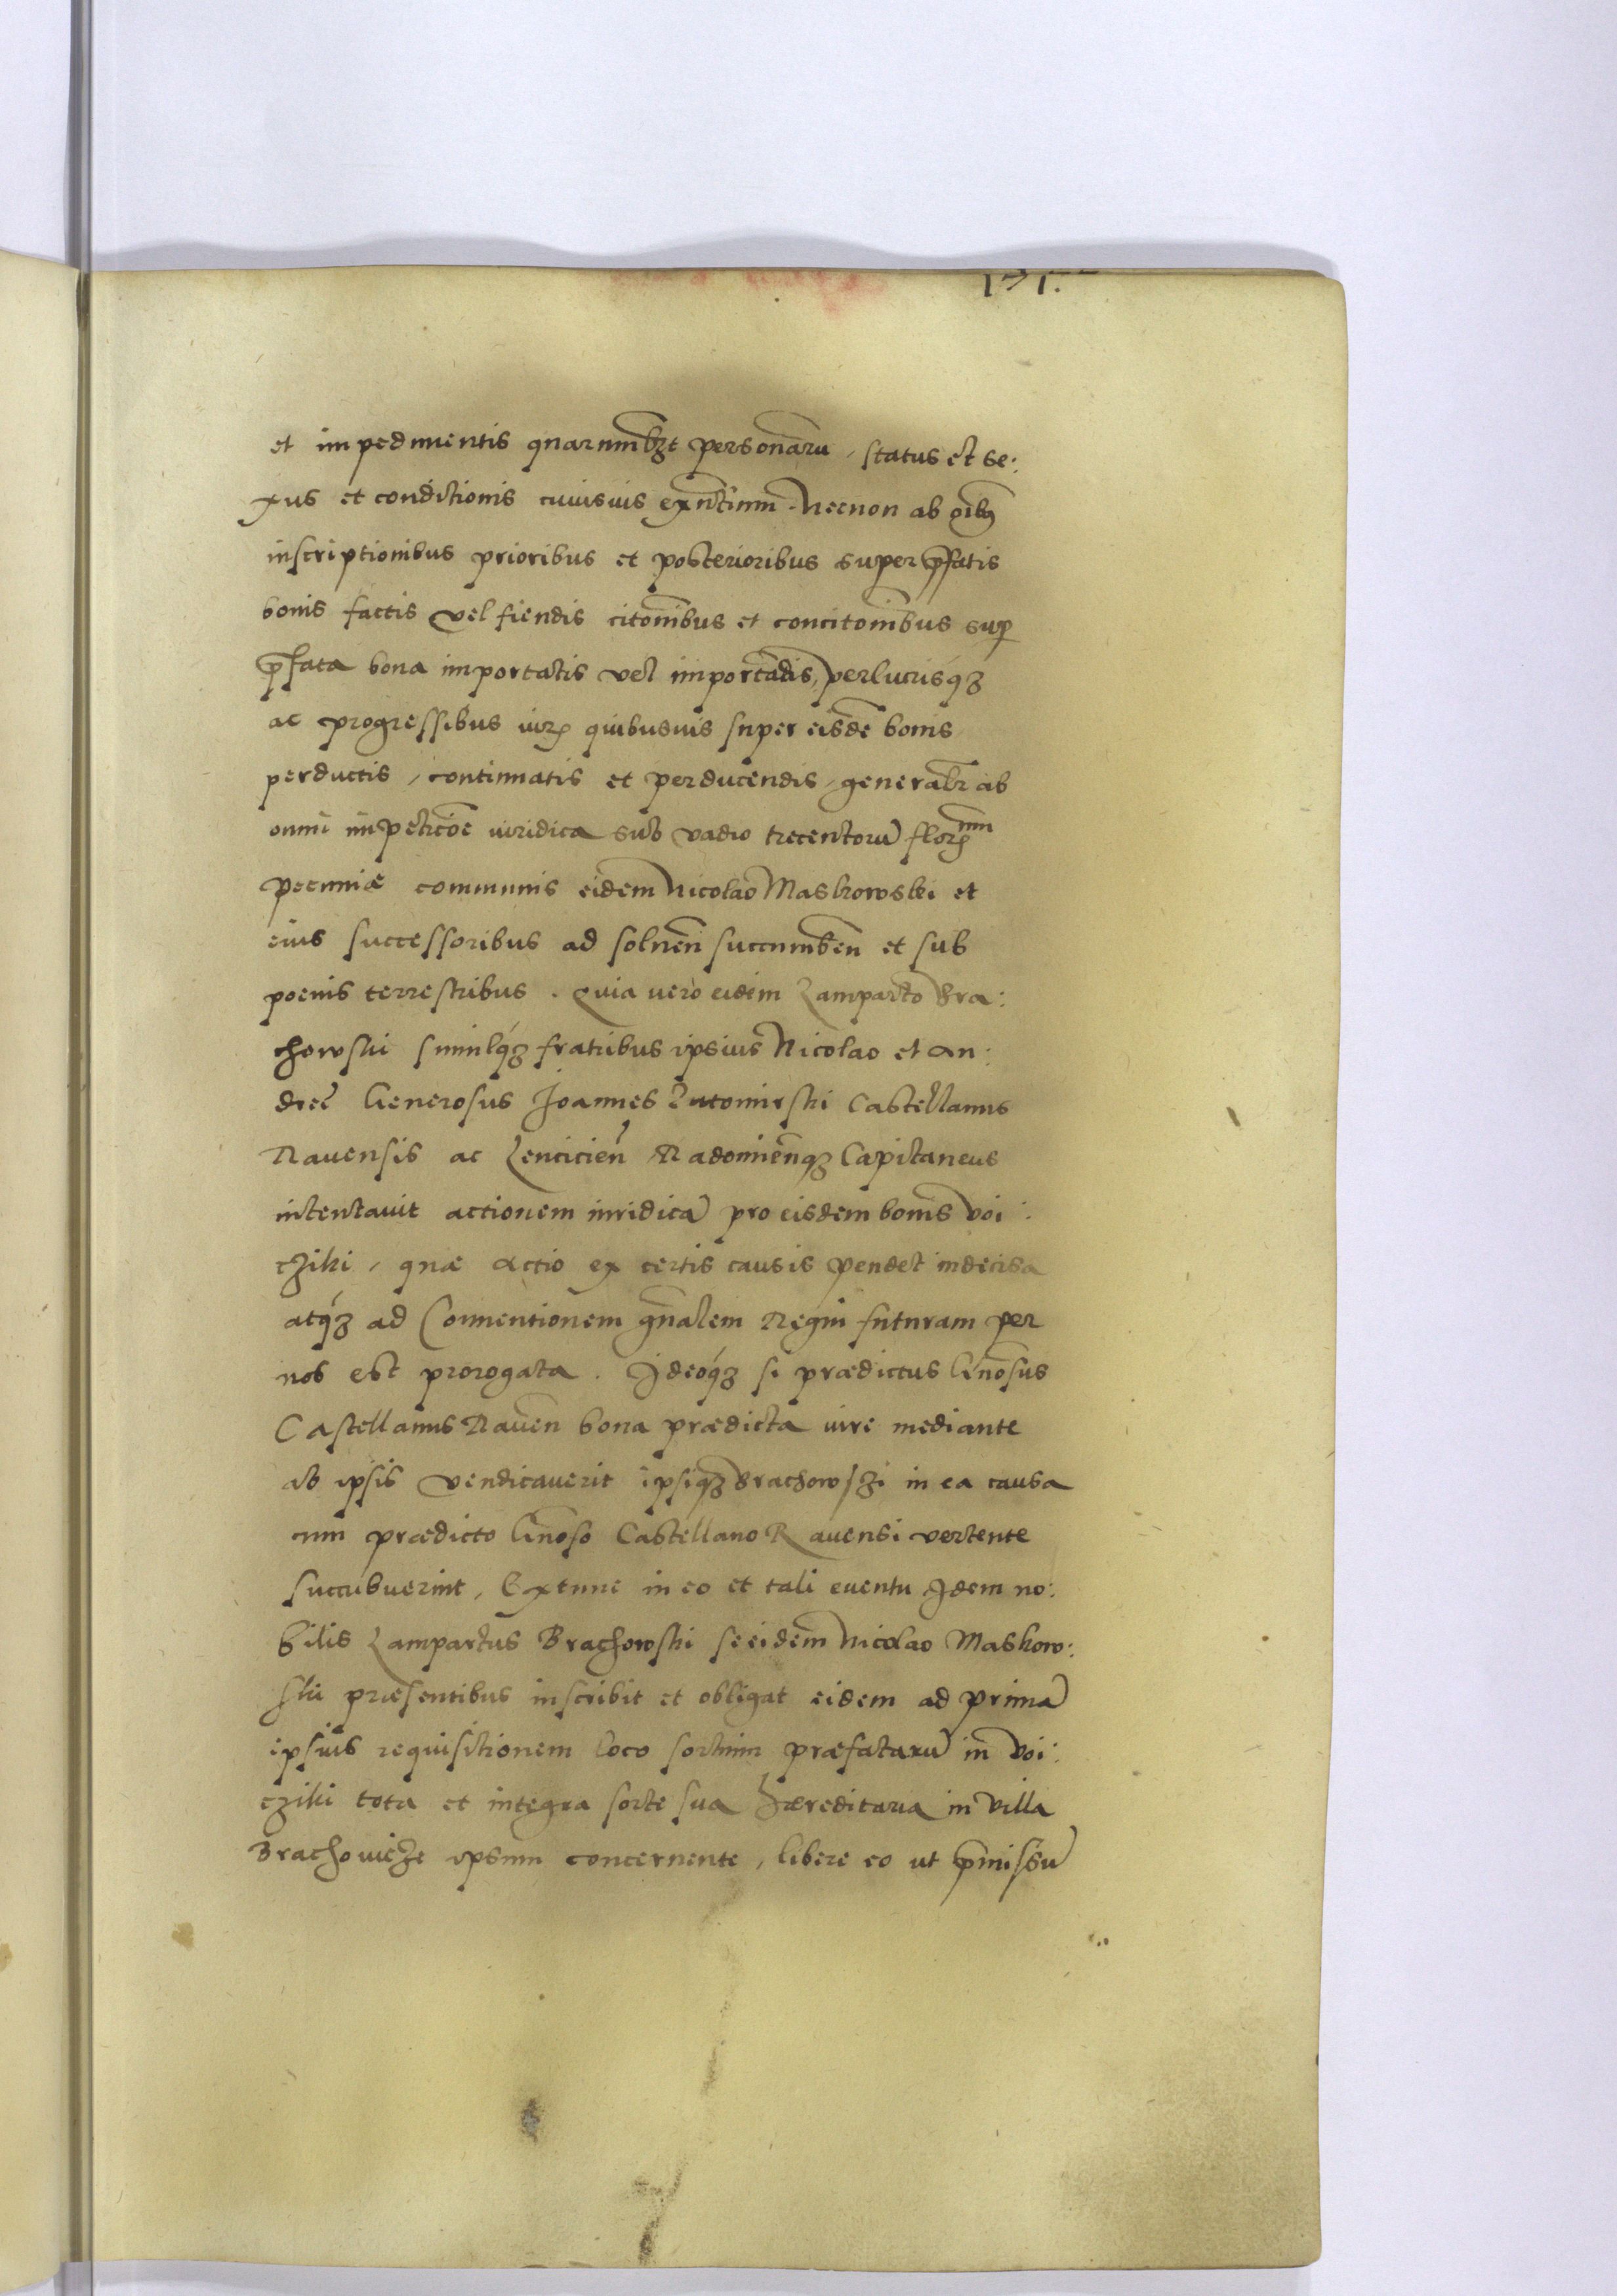 171.
et impedimentis quarumlibet personaru, status et se:
xus et conditionis cuiusvis exntium. Necnon ab oibus
inscriptionibus prioribus et posterioribus super pfatis
bonis factis vel fiendis citonibus et concitonibus sup
pfata bona importatis vel importadis, perlucrisq3
ac progressibus iur quibusuis super eisde bonis
perductis, continuatis et perducendis, generalr ab
omni impeticoe iuridica sub vadio trecentoru florum
pecuniæ communis eidem Nicolao Maskowski et
eius successoribus ad soluen succumben et sub
poenis terrestribus. Quia vero eidem Lamparto Bra:
chowski simulq3 fratribus ipsius Nicolao et An:
dreæ Generosus Joannes Lutomirski Castellanus
Rauensis ac Lencicien Radomienq3 Capitaneus
intentauit actionem iuridica pro eisdem bonis Voi:
cziki, quæ actio ex certis causis pendet indecisa
atq3 ad Conuentionem gnalem Regni futuram per
nos est prorogata. Ideoq3 si prædictus Gnosus
Castellanus Rauen bona prædicta iure mediante
ab ipsis vendicauerit ipsiq3 Brachowszi in ea causa
cum prædicto Gnoso Castellano Rauensi vertente
succubuerint, Extunc in eo et tali euentu Idem no:
bilis Lampartus Brachowski se eidem Nicolao Maskow:
ski præsentibus inscribit et obligat eidem ad prima
ipsius requisitionem loco sortium præfataru in Voi:
cziki tota et integra sorte sua hæreditaria in villa
Brachovicze ipsum concernente, libere eo ut pmissu